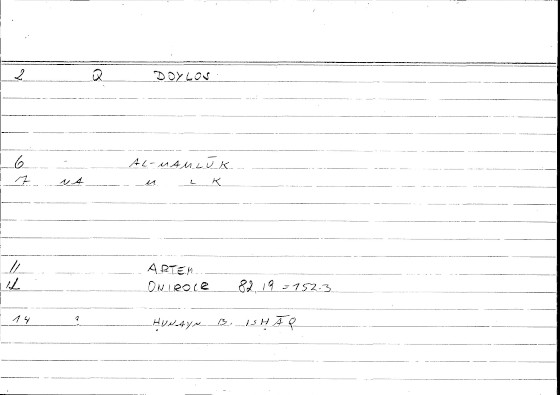 2 Q DOYLOS
6 - AL-MAMLŪK
7 NA M L K
11 ARTEM
12 ONIROCR 82,19 = 152.3
14 ? ḤUNAYN B. ISḤĀQ